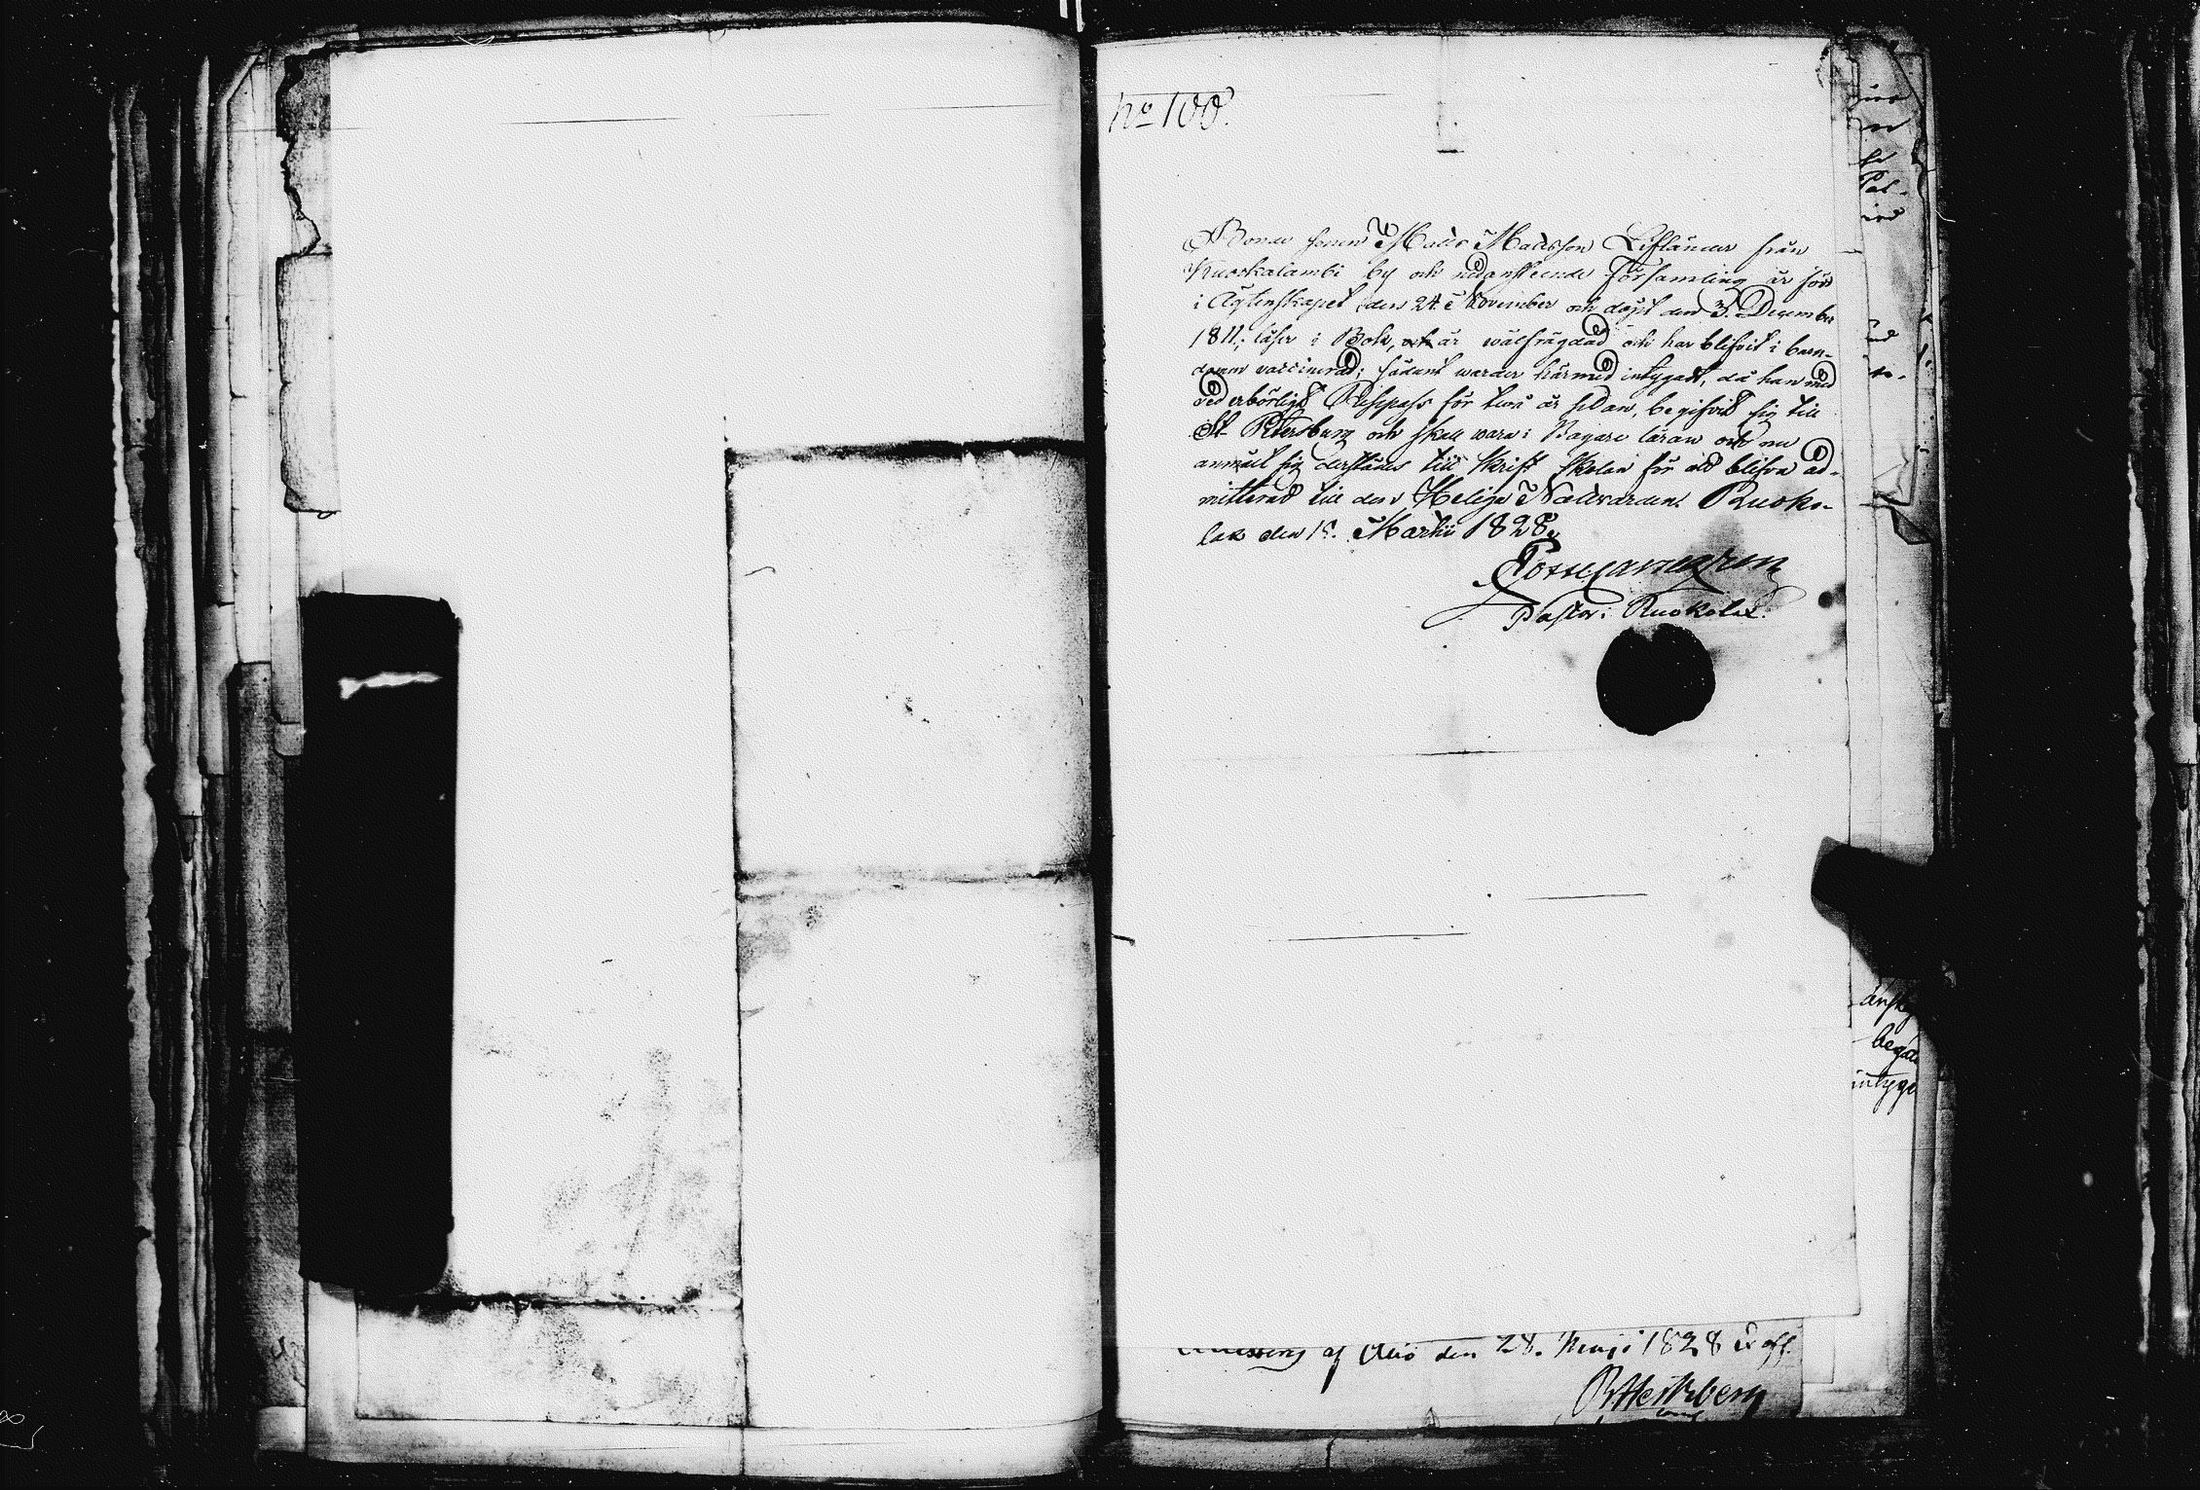 no 100.
Bonde sonen Mats Matsson Lifländer från
Kuoskalambi by och nedanstående Församling är född
i Ägtenskapet den 24. November och döpt den 3. December
1811; läser i Bok, och är wälfrägdad och har blifvit i barn-
domen vaccinerad; sådant warder härmed intygadt, då han med
vederbörligt Respass för två år sedan, begifvit sig till
St. Petersburg och skall wara i Bagare läran och nu
anmält sig derstädes till Skrift Skolan för att blifva ad-
mitterad till den Heliga Nattvarden. Ruoko-
lax den 15. Martii 1828.
Pastor i Ruokolax.
af Åbo den 28. Maji 1828 Ex off.
begä
intyga